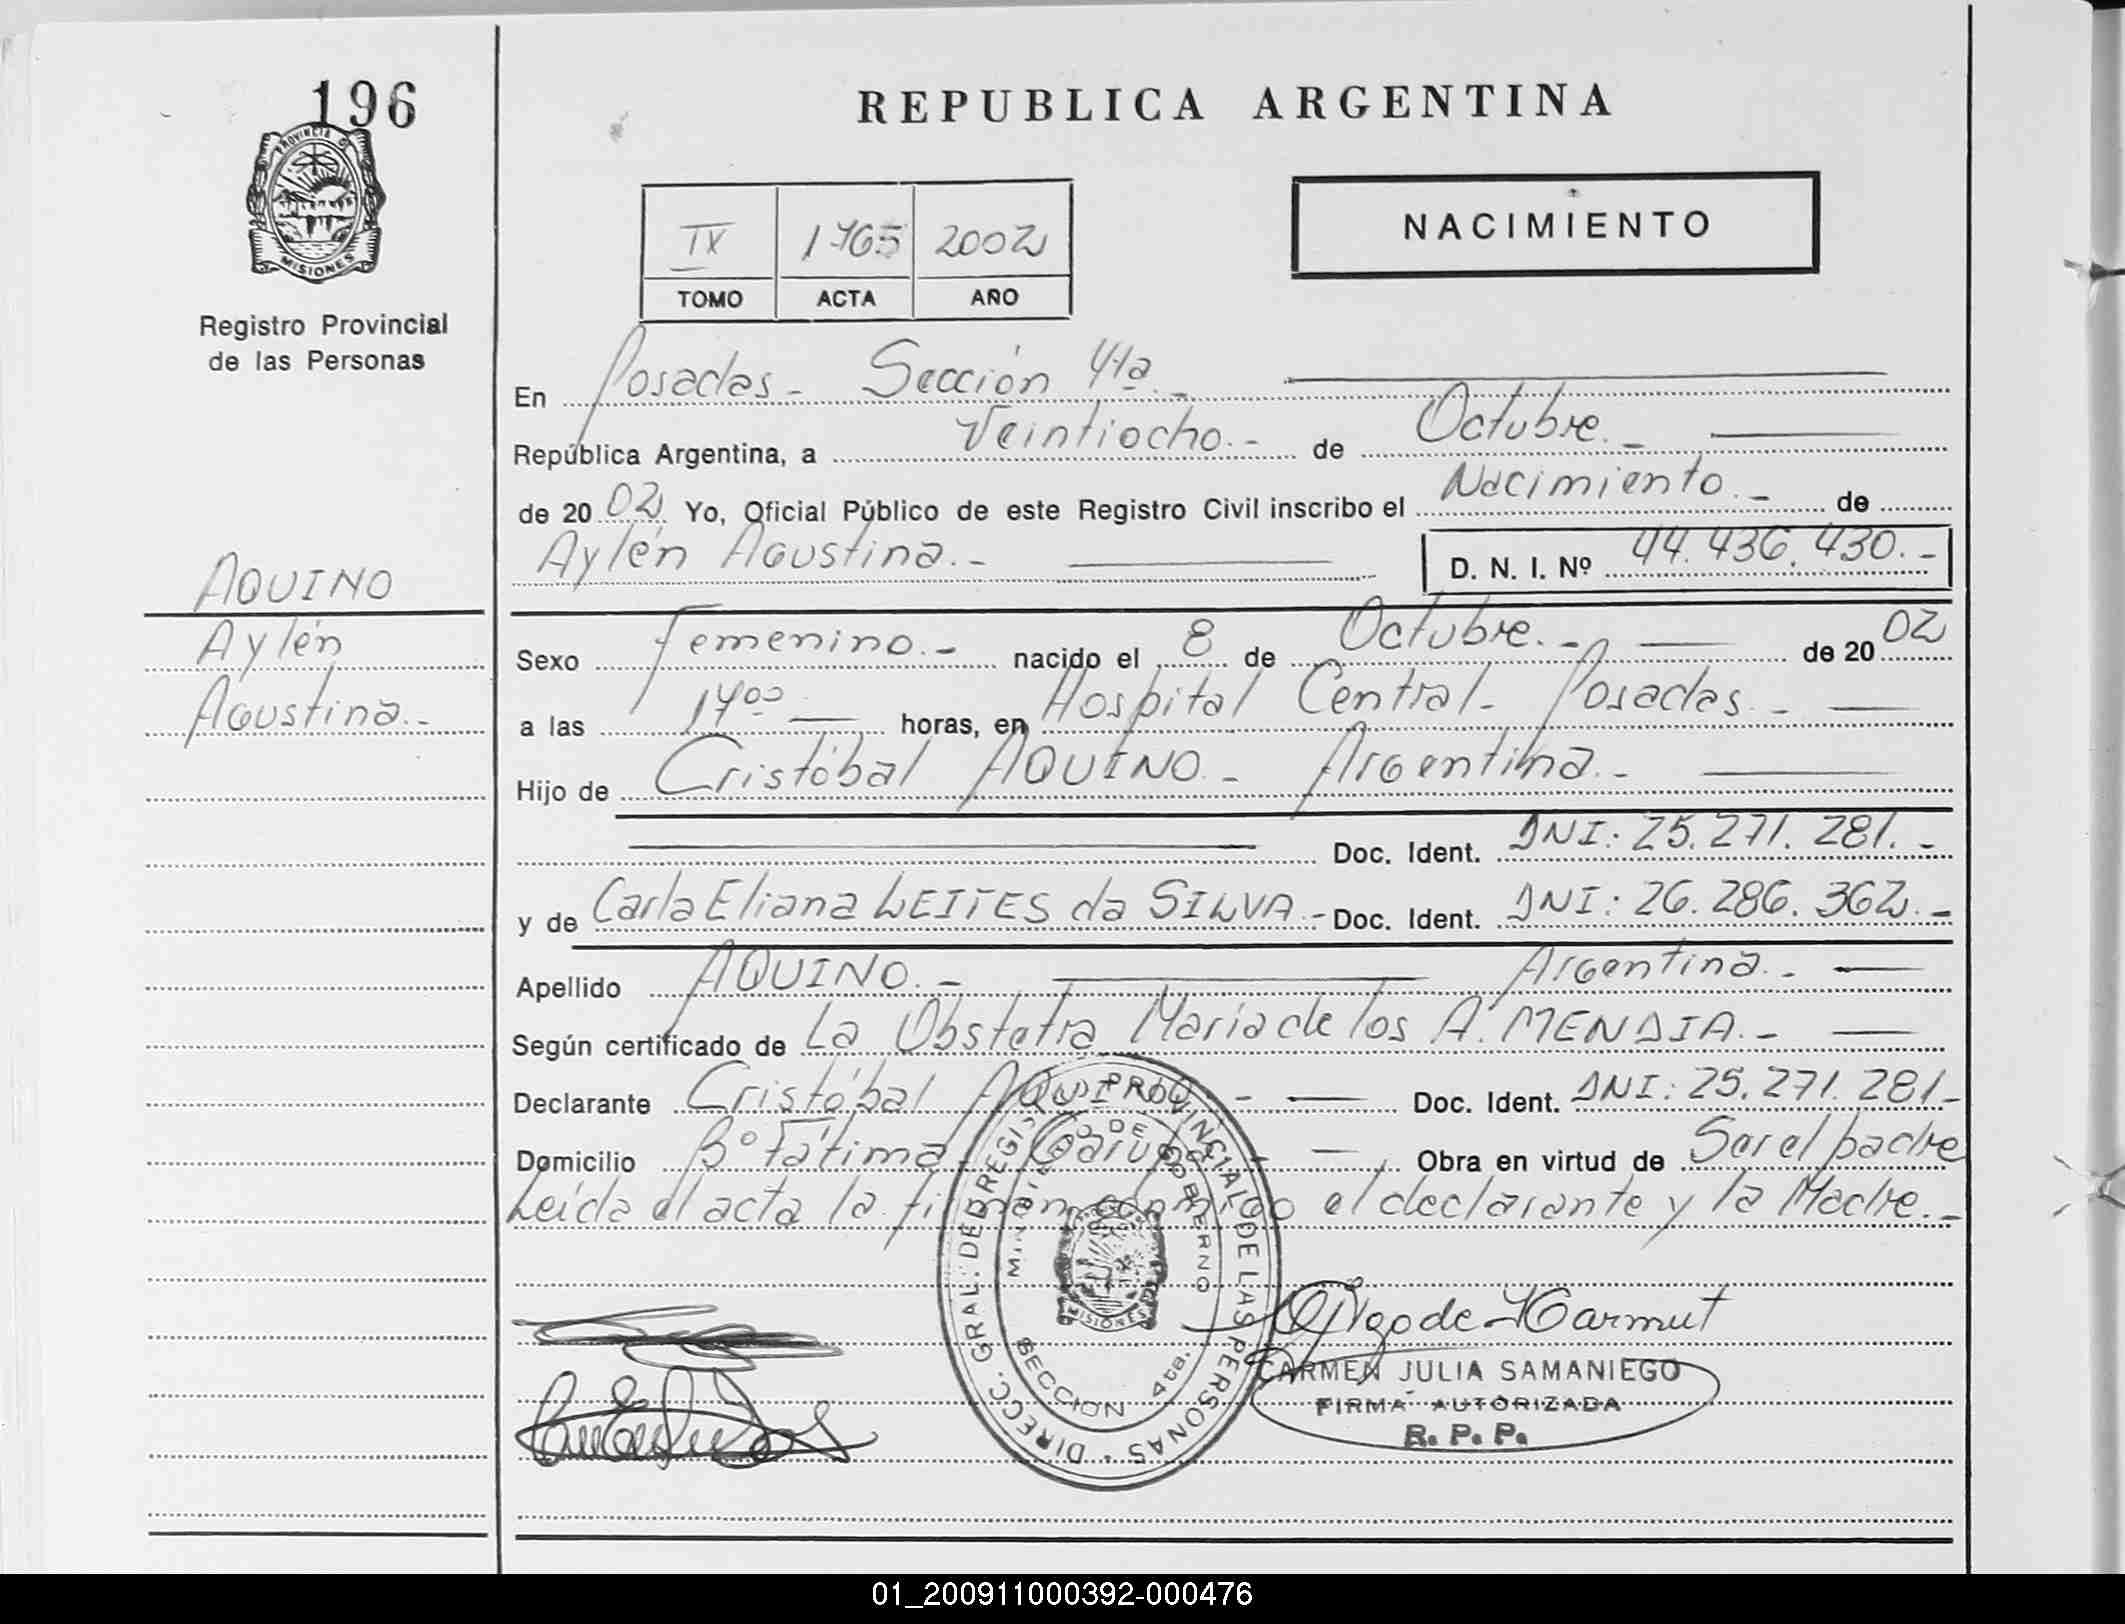 196
PROVINCIA DE
MISIONES
Registro Provincial
de las Personas
AQUINO
Aylén
Agustina.-
REPUBLICA ARGENTINA
NACIMIENTO
IX 1765 2002
TOMO ACTA AÑO
En Posadas - Sección 4ta.-
República Argentina, a Veintiocho.- de Octubre.-
de 20 02 Yo, Oficial Público de este Registro Civil inscribo el Nacimiento.- de
Aylén Agustina.- D. N. I. Nº 44.436.430.-
Sexo Femenino.- nacido el 8 de Octubre.- de 20 02
a las 1400 horas, en Hospital Central- Posadas.-
Hijo de Cristóbal AQUINO.- Argentina.-
Doc. Ident. DNI: 25.271.281.-
y de Carla Eliana LEITES da SILVA.- Doc. Ident. DNI: 26.286.362.-
Apellido AQUINO.- Argentina.-
Según certificado de La Obstetra María de los A. MENDIA.-
Declarante Cristóbal AQUINO.- Doc. Ident. DNI: 25.271.281-
Domicilio Bº Fátima Garupá.- Obra en virtud de Ser el padre
Leída el acta la firman conmigo el declarante y la Madre.-
DIRECC. GRAL. DE REGIS. PROVINCIAL DE LAS PERSONAS
MINISTERIO DE GOBIERNO
MISIONES
SECCION 4ta.
CARMEN JULIA SAMANIEGO
FIRMA AUTORIZADA
R. P. P.
01_200911000392-000476